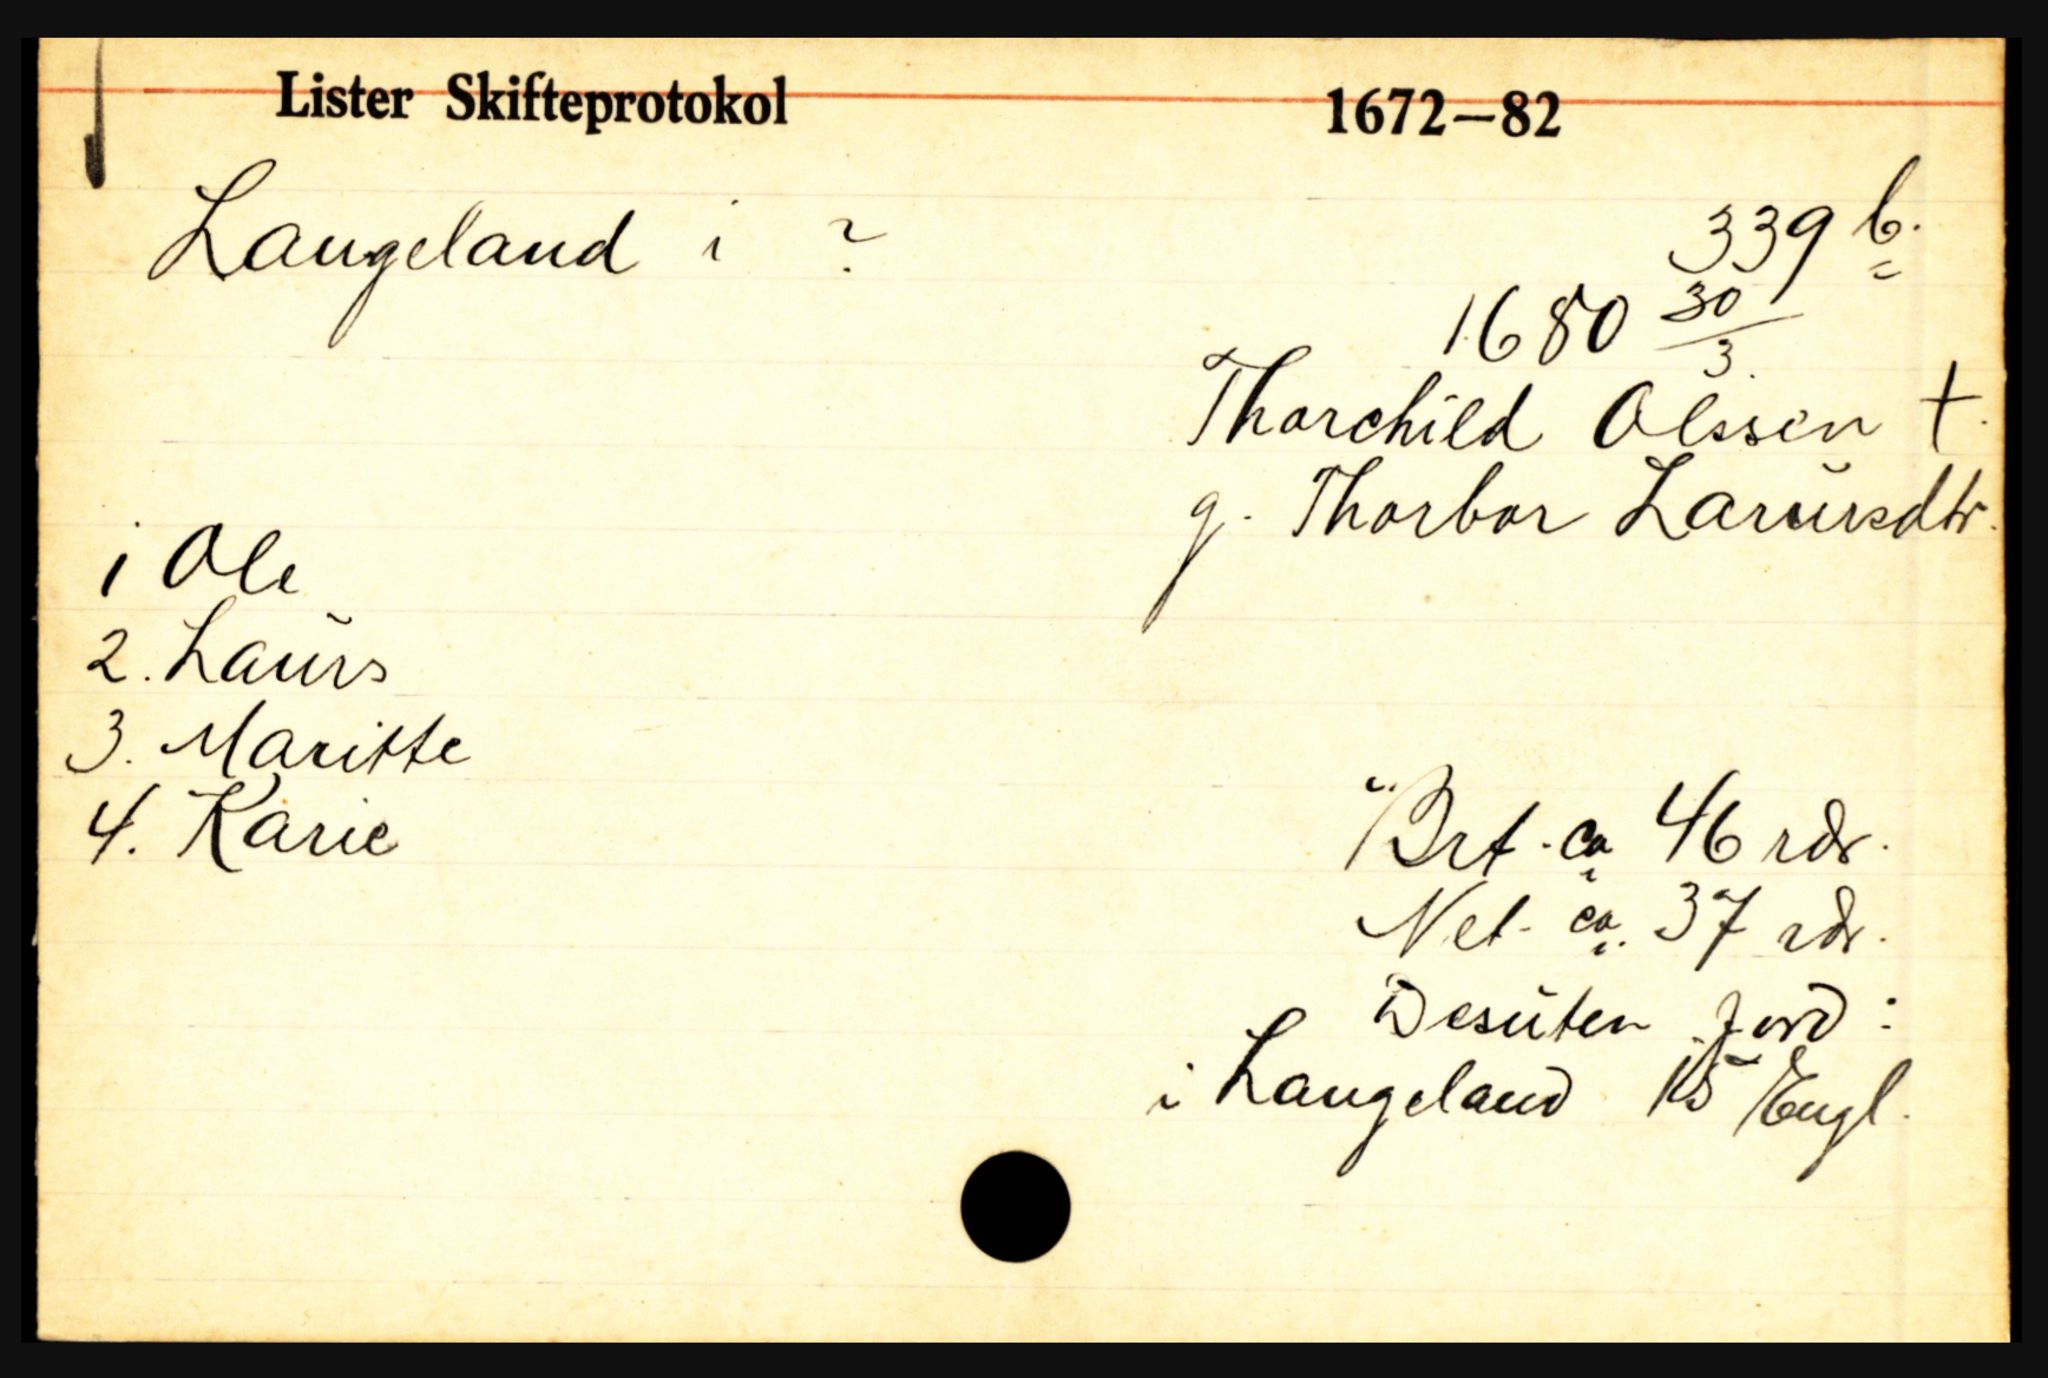 Lister Skifteprotokol 1672—82
Langeland i ?
339 b.
1680 30/3.
Thorchild Olssen †.
g. Thorbor Larursdtr.
1 Ole
2. Laurs
3. Maritte
4. Karie
Brt. ca 46 rdr.
Net. ca. 37 rdr.
Desuten jord :
i Langeland 15 Engl.